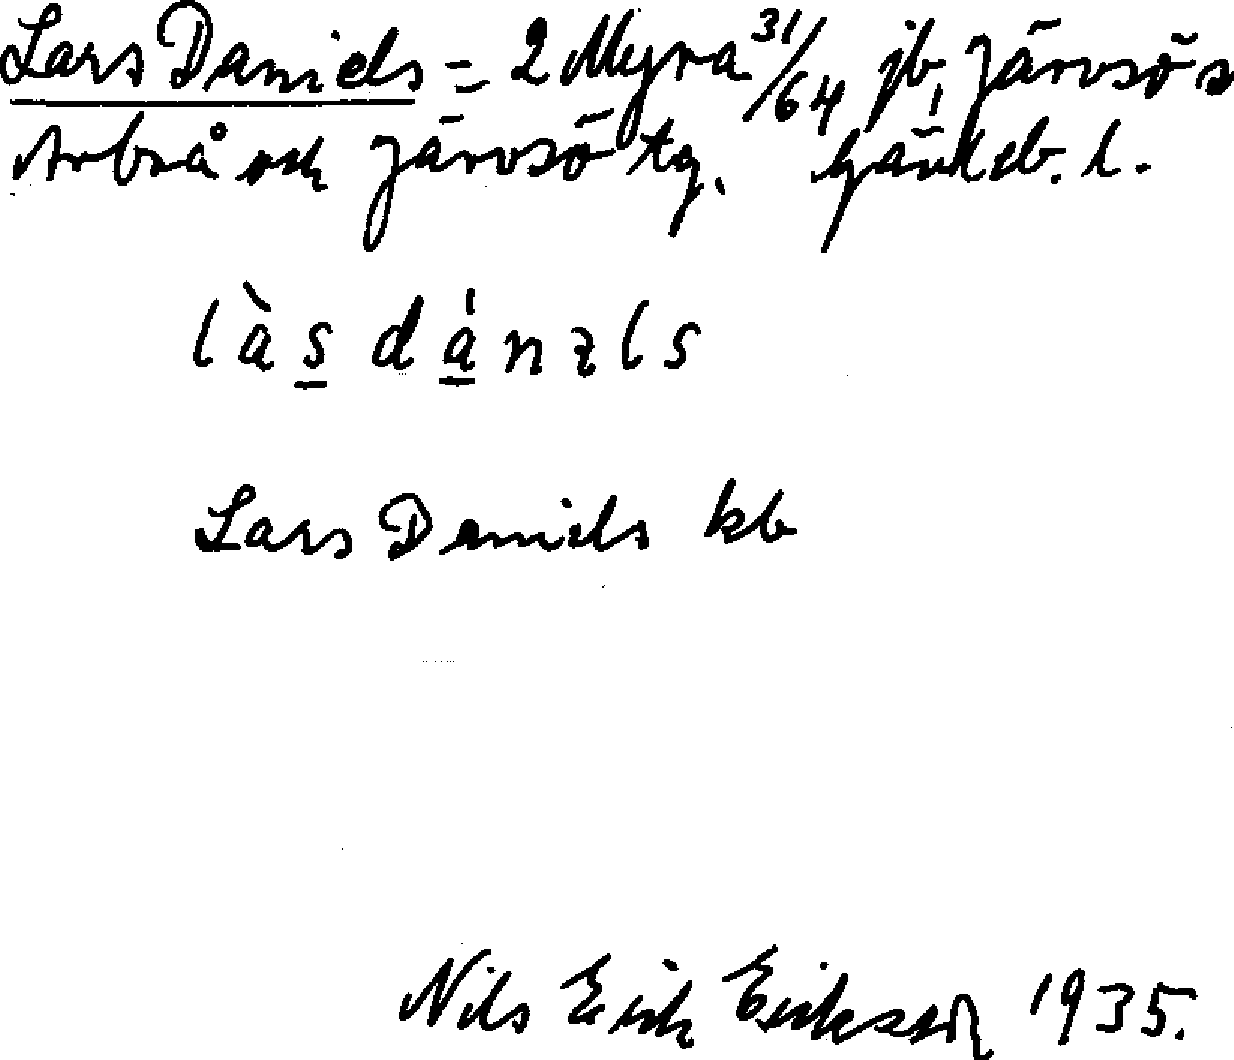 Lars Daniels = 2 Myra 31/64 jb, Järvsö s
Arbrå och Järvsö tg. Gävleb. l.
làs dánzls
Lars Daniels kb
Nils Erik Eriksson 1935.